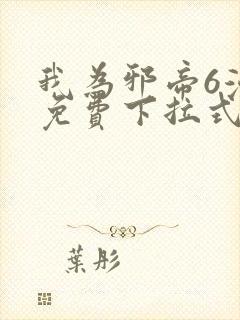 我为邪帝6
免费下拉式
葉彤